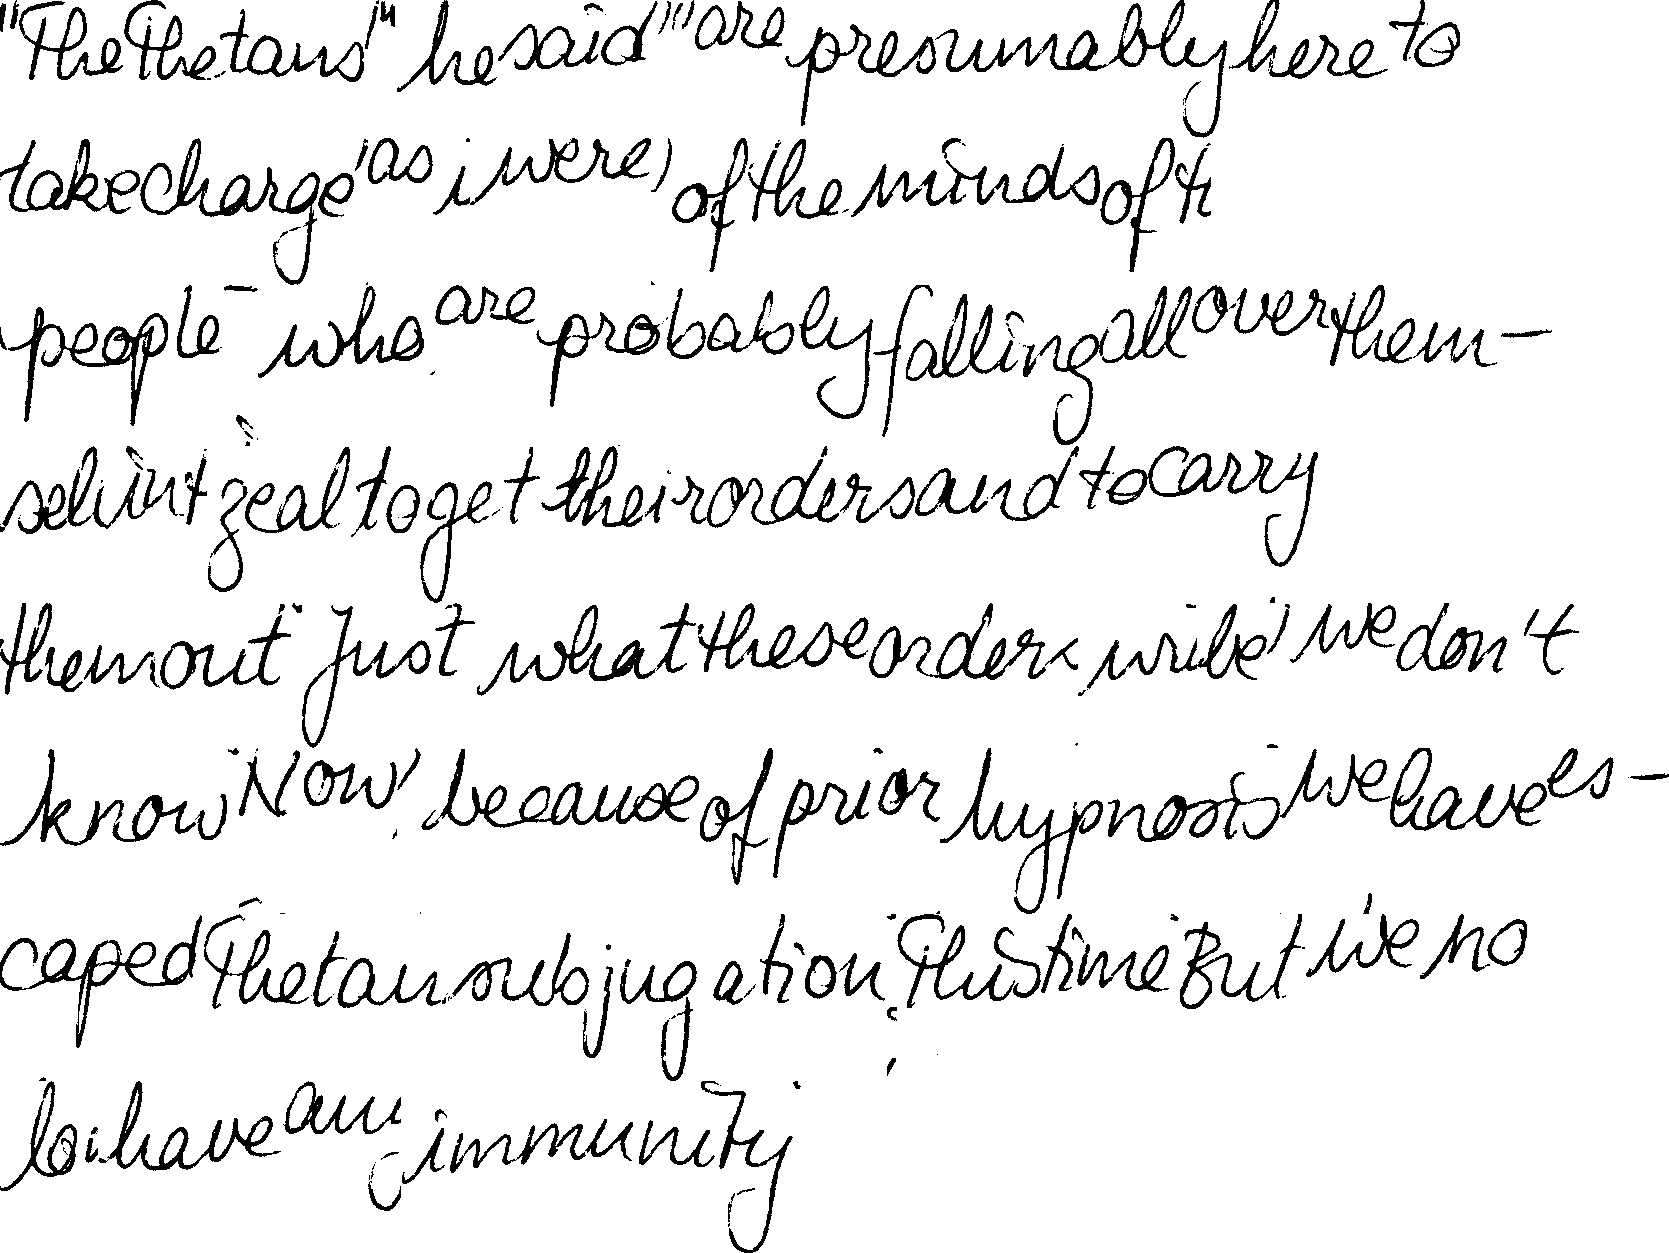 "The Thetans," he said, "are presumably here to
take charge, as i were, of the minds of
people - who are probably falling all over them-
zeal to get their orders and to carry
them out. Just what these orders be, we don't
know. Now, because of prior hypnosis we have es-
caped Thetan subjugation. This time. But we no
have any immunity